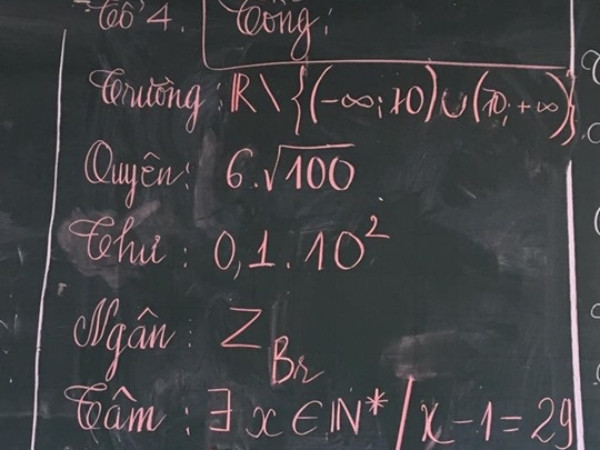 Tổ 4. Tổng:
Trường: ℝ \ {(-∞; 10) ∪ (10; +∞)}
Quyên: 6.√100
Thư: 0,1.10²
Ngân: Z_Br
Tâm: ∃ x ∈ ℕ* / x - 1 = 29